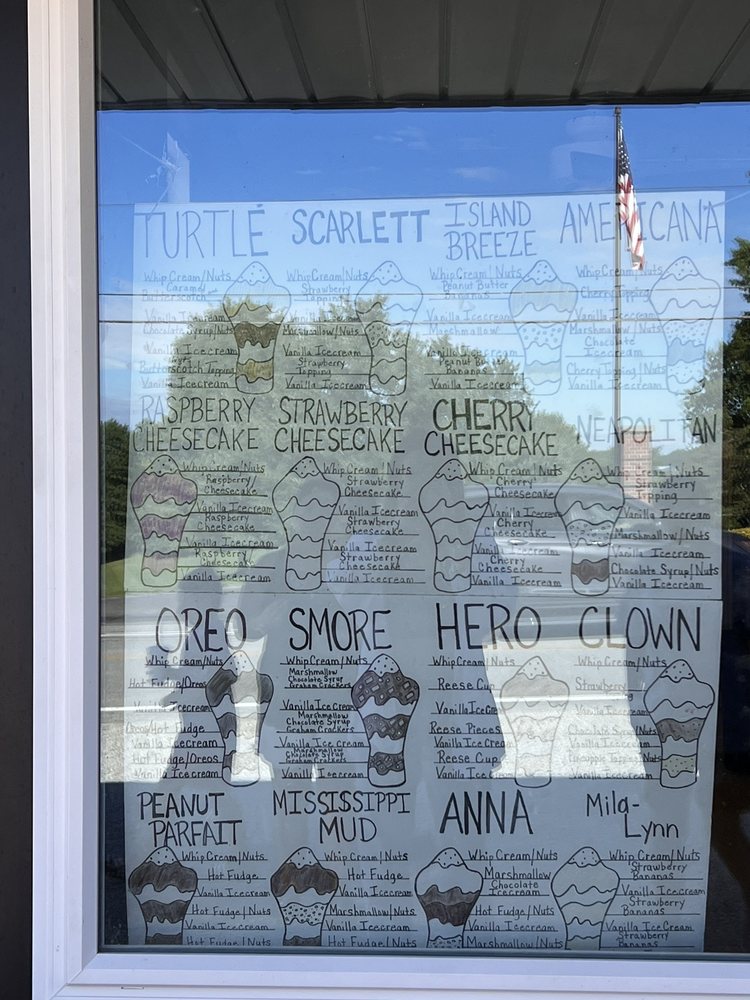 TURTLE
Whip Cream/Nuts
Caramel
Butterscotch
Vanilla Icecream
Chocolate Syrup/Nuts
Vanilla Icecream
Butterscotch Topping
Vanilla Icecream
SCARLETT
Whip Cream/Nuts
Strawberry
Topping
Vanilla Icecream
Marshmallow/Nuts
Vanilla Icecream
Strawberry
Topping
Vanilla Icecream
ISLAND
BREEZE
Whip Cream/Nuts
Peanut Butter
Bananas
Vanilla Icecream
Marshmallow
Vanilla Icecream
Peanut Butter
Bananas
Vanilla Icecream
AMERICANA
Whip Cream/Nuts
Cherry Topping
Vanilla Icecream
Marshmallow/Nuts
Chocolate
Icecream
Cherry Topping/Nuts
Vanilla Icecream
RASPBERRY
CHEESECAKE
Whip Cream/Nuts
Raspberry/
Cheesecake
Vanilla Icecream
Raspberry
Cheesecake
Vanilla Icecream
Raspberry
Cheesecake
Vanilla Icecream
STRAWBERRY
CHEESECAKE
Whip Cream/Nuts
Strawberry
Cheesecake
Vanilla Icecream
Strawberry
Cheesecake
Vanilla Icecream
Strawberry
Cheesecake
Vanilla Icecream
CHERRY
CHEESECAKE
Whip Cream/Nuts
Cherry
Cheesecake
Vanilla Icecream
Cherry
Cheesecake
Vanilla Icecream
Cherry
Cheesecake
Vanilla Icecream
NEAPOLITAN
Whip Cream/Nuts
Strawberry
Topping
Marshmallow/Nuts
Vanilla Icecream
Chocolate Syrup/Nuts
Vanilla Icecream
OREO
Whip Cream/Nuts
Hot Fudge/Oreos
Vanilla Icecream
Oreos/Hot Fudge
Vanilla Icecream
Hot Fudge/Oreos
Vanilla Icecream
SMORE
Whip Cream/Nuts
Marshmallow
Chocolate Syrup
Graham Crackers
Vanilla Icecream
Marshmallow
Chocolate Syrup
Graham Crackers
Vanilla Icecream
Marshmallow
Chocolate Syrup
Graham Crackers
Vanilla Icecream
HERO
Whip Cream/Nuts
Reese Cup
Vanilla Icecream
Reese Pieces
Vanilla Icecream
Reese Cup
Vanilla Icecream
CLOWN
Whip Cream/Nuts
Strawberry
Vanilla Icecream
Chocolate Syrup/Nuts
Vanilla Icecream
Pineapple Topping/Nuts
Vanilla Icecream
PEANUT
PARFAIT
Whip Cream/Nuts
Hot Fudge
Vanilla Icecream
Hot Fudge/Nuts
Vanilla Icecream
Hot Fudge/Nuts
MISSISSIPPI
MUD
Whip Cream/Nuts
Hot Fudge
Vanilla Icecream
Marshmallow/Nuts
Vanilla Icecream
Hot Fudge/Nuts
ANNA
Whip Cream/Nuts
Marshmallow
Chocolate
Icecream
Hot Fudge/Nuts
Vanilla Icecream
Marshmallow/Nuts
Mila-
Lynn
Whip Cream/Nuts
Strawberry
Bananas
Vanilla Icecream
Strawberry
Bananas
Vanilla IceCream
Strawberry
Bananas